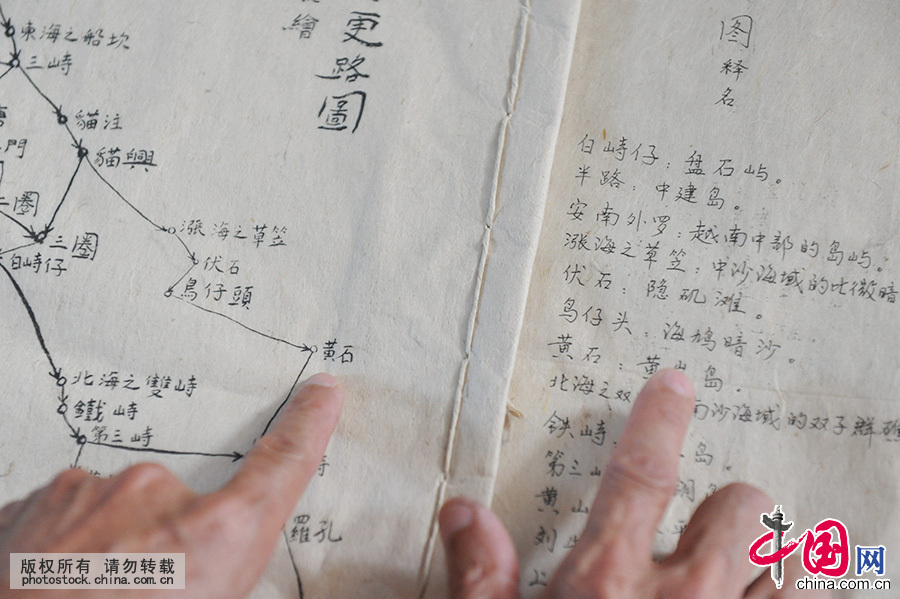 更路圖
繪
東海之船坎
三峙
貓注
貓興
門
二圈
三圈
白峙仔
漲海之草笠
伏石
鳥仔頭
黃石
北海之雙峙
鐵峙
第三峙
峙
羅孔
图释名
白峙仔：盘石屿。
半路：中建岛。
安南外罗：越南中部的岛屿。
漲海之草笠：中沙海域的比微暗
伏石：隐矶滩。
鸟仔头：海鸠暗沙。
黄石：黄岩岛.
北海之双 南沙海域的双子群礁
铁峙 岛。
第三峙
黄山
刘
版权所有 请勿转载
photostock.china.com.cn
中国网
china.com.cn